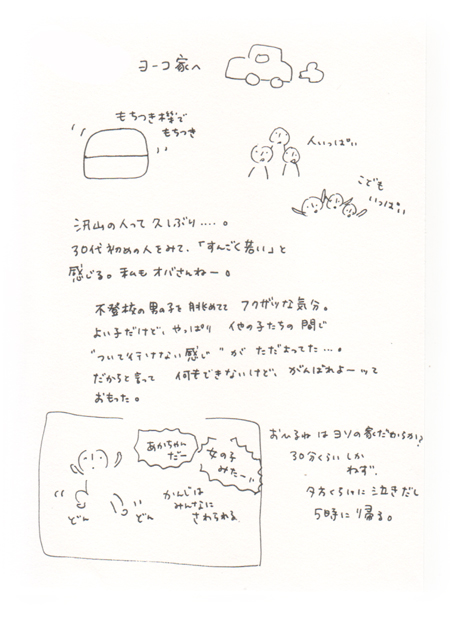 ヨーコ家へ
もちつき機で
もちつき
人いっぱい
こども
いっぱい
沢山の人って久しぶり.....。
30代初めの人をみて、「すんごく若い」と
感じる。私もオバさんねー。
不登校の男の子を眺めてて フクザツな気分。
よい子だけど、やっぱり 他の子たちの間じ
"ついて行けない感じ"が ただよってた...。
だからと言って 何もできないけど、がんばれよーッて
おもった。
あかちゃん
だー
女の子
みたー
どん
どん
かんじは
みんなに
さわられる
おひるねはヨソの家だからか?
30分くらいしか
ねず
夕方ぐちゃに泣きだし
5時に帰る。